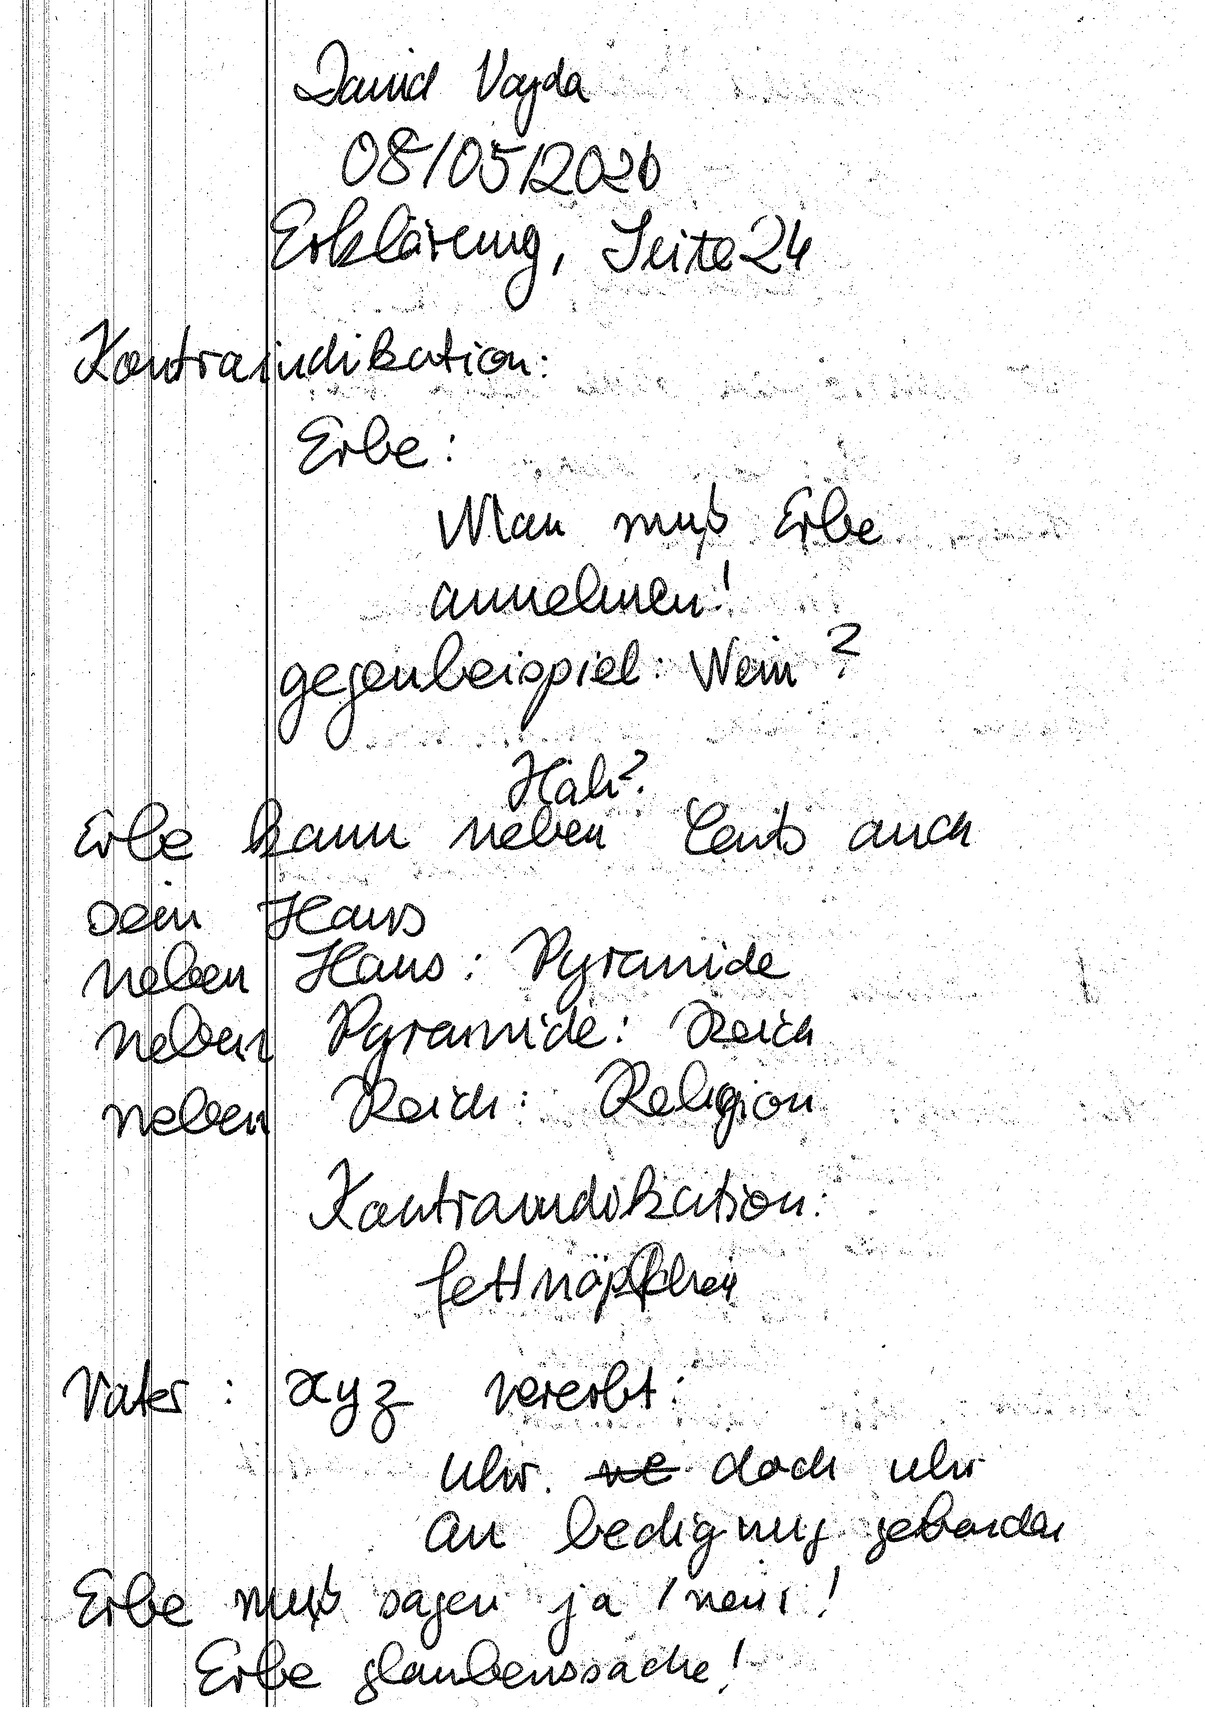 David Vajda
08/05/2026
Erklärung, Seite 24
Kontraindikation:
Erbe:
Man muß Erbe
annehmen!
gegenbeispiel: Wein?
Häh?
Erbe kann neben Cents auch
sein Haus
neben Haus: Pyramide
neben Pyramide: Reich
neben Reich: Religion
Kontraindikation:
fettnäpfchen
Vater: xyz vererbt:
Uhr. ne doch uhr
an bedigung gebunden
Erbe muß sagen ja / nein!
Erbe glaubenssache!